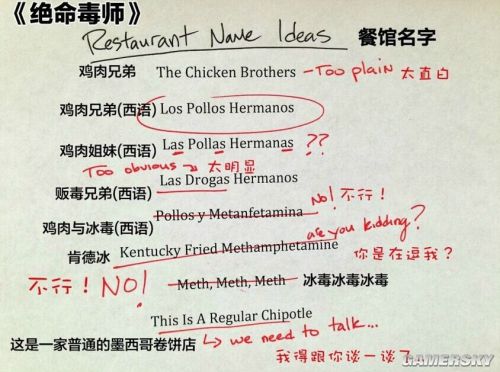 《绝命毒师》
Restaurant Name Ideas 餐馆名字
鸡肉兄弟 The Chicken Brothers - Too plain 太直白
鸡肉兄弟(西语) Los Pollos Hermanos
鸡肉姐妹(西语) Las Pollas Hermanas ??
Too obvious 太明显
贩毒兄弟(西语) Las Drogas Hermanos
鸡肉与冰毒(西语) Pollos y Metanfetamina No! 不行!
are you kidding?
肯德冰 Kentucky Fried Methamphetamine 你是在逗我?
不行! NO! Meth, Meth, Meth 冰毒冰毒冰毒
This Is A Regular Chipotle
这是一家普通的墨西哥卷饼店 we need to talk...
我得跟你谈一谈了...
GAMERSKY